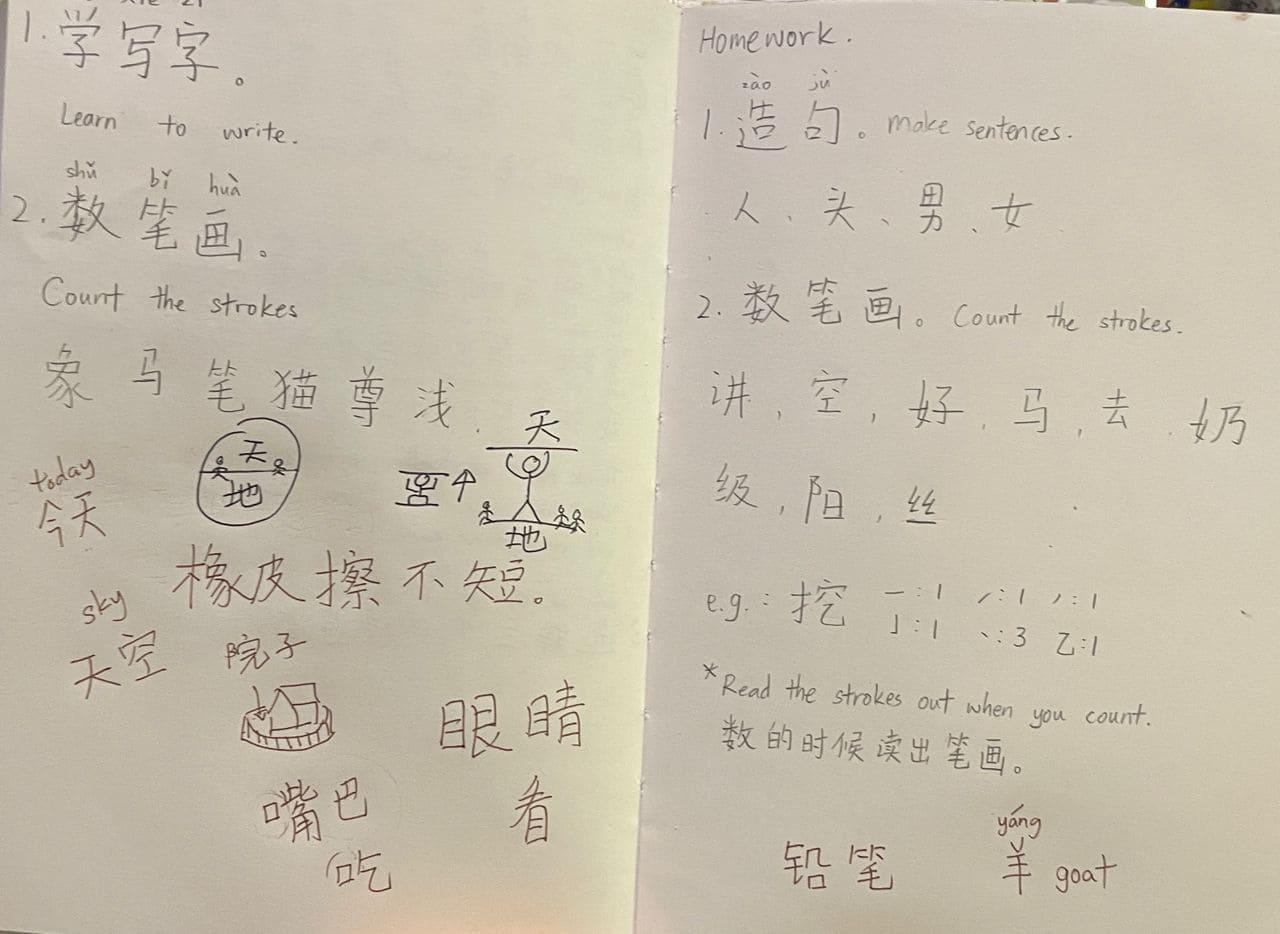 1. 学写字。
Learn to write.
shǔ bǐ huà
2. 数笔画。
Count the strokes
象 马 笔 猫 尊 浅.
天
天
today
地
今天
地
橡皮擦不短。
sky
天空
院子
眼睛
嘴巴
看
吃
Homework.
zào jù
1. 造句。make sentences.
人、头、男、女
2. 数笔画。Count the strokes.
讲, 空, 好, 马, 去, 奶
级, 阳, 丝
e.g.: 挖 一:1 ㇀:1 丿:1
亅:1 丶:3 乙:1
*Read the strokes out when you count.
数的时候读出笔画。
yáng
铅笔 羊 goat